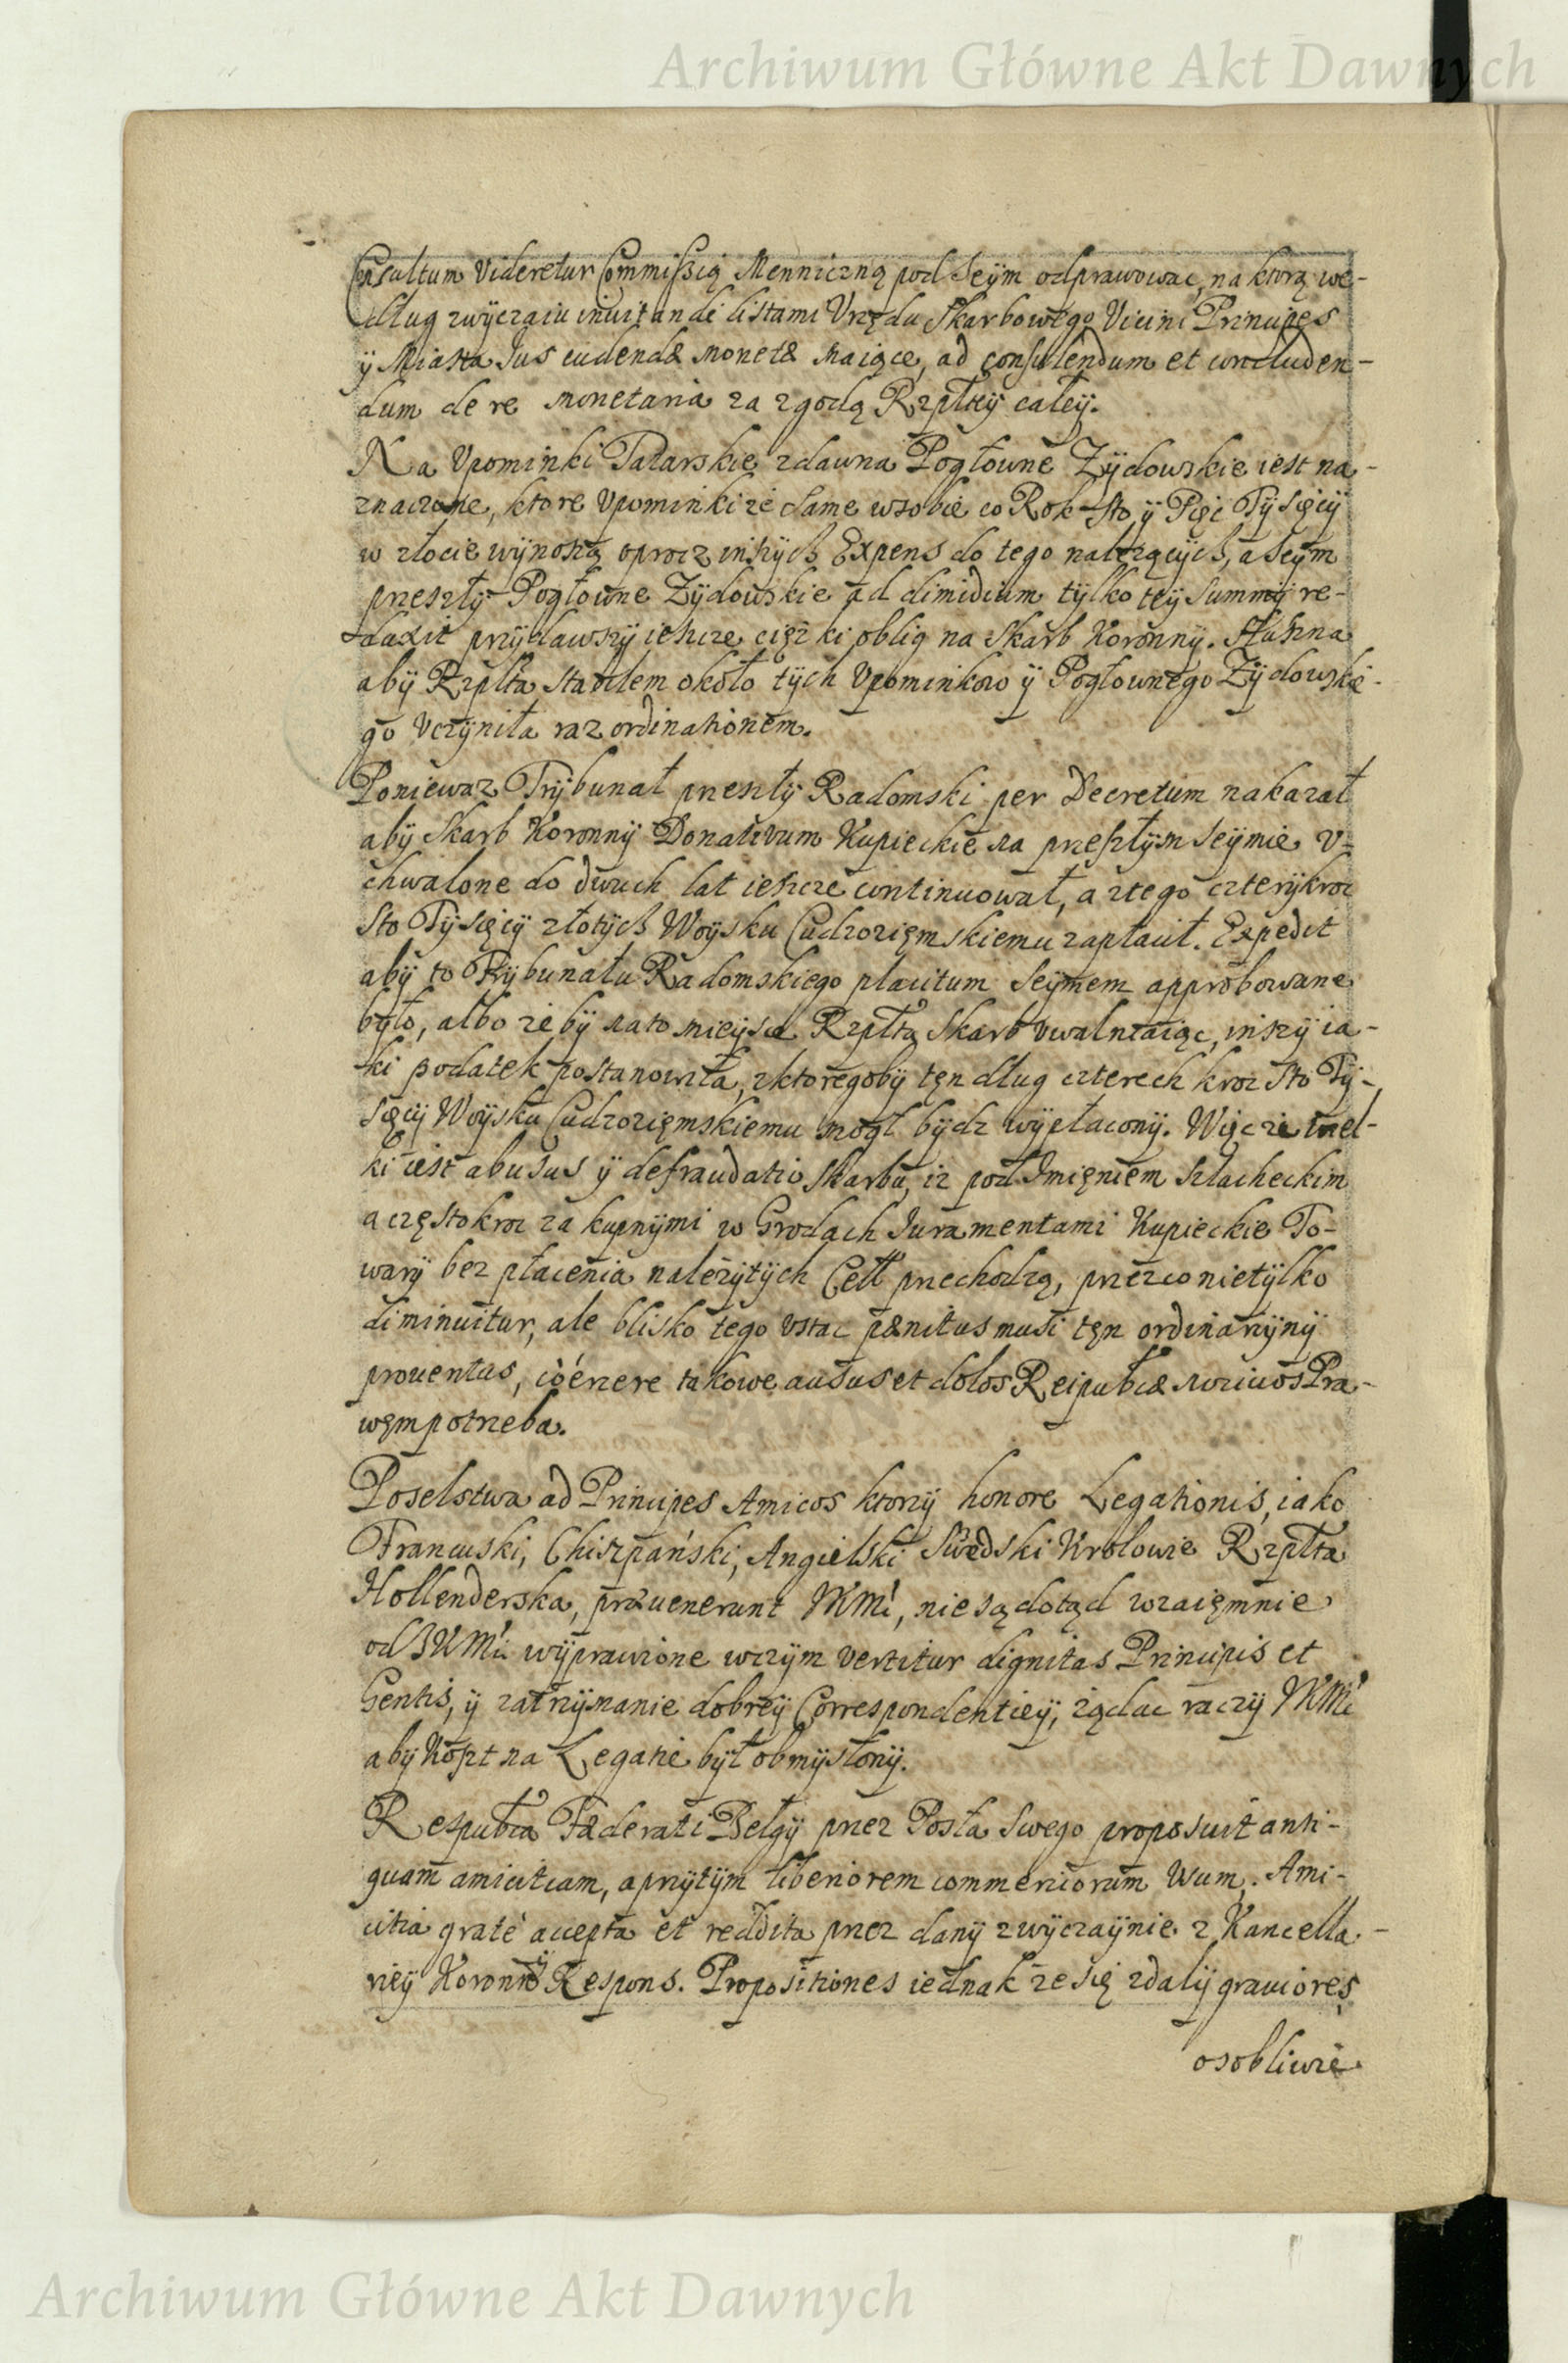 Archiwum Główne Akt Dawnych
Consultum Videretur Commissią Menniczną pod Seÿm odprawować, na ktorą we-
dług zwÿczaiu invitandi listami Vrzędu Skarbowego Vicini Principes
ÿ Miasta Jus cudendæ monetæ maiące, ad consulendum et concluden-
dum de re monetaria za zgodą Rzpltey całeÿ.
Na Vpominki Tatarskie zdawna Pogłowne Zÿdowskie iest na-
znaczone, ktore Vpominki że same w sobie co Rok sto ÿ Pięć Tÿsięcÿ
w złocie wÿnoszą oprocz inszÿch Expens do tego nalezącÿch, a Seÿm
przeszłÿ Pogłowne Zÿdowskie ad dimidium tÿlko teÿ Summÿ re-
duxit przÿdawszÿ ieszcze cięszki oblig na Skarb Koronnÿ. Słuszna
abÿ Rzplta statilem około tÿch Vpominkow ÿ Pogłownego Zÿdowskie-
go Vczÿniła raz ordinationem.
Poniewaz Trÿbunał przeszłÿ Radomski per Decretum nakazał
abÿ Skarb Koronnÿ Donativum Kupieckie na przeszłÿm Seÿmie v-
chwalone do dwuch lat ieszcze continuował, a ztego czterÿkroc
Sto Tÿsięcÿ złotÿch Woÿsku Cudzoziemskiemu zapłacił. Expedit
abÿ to Trÿbunału Radomskiego placitum Seÿmem approbowane
bÿło, albo żebÿ na to mieÿsce Rzplta Skarb vwalniaiąc, inszÿ ia-
ki podatek postanowiła, z ktoregobÿ ten dług czterech kroc Sto Tÿ-
sięcÿ Woÿsku Cudzoziemskiemu mogł bÿdz wÿpłaconÿ. Więc że wiel-
ki iest abusus ÿ defraudatio Skarbu, iz pod Imieniem Szlacheckim
a częstokroc za kupnÿmi w Grodach Juramentami Kupieckie To-
warÿ bez płacenia należÿtÿch Cełł przechodzą, przez co nietÿlko
diminuitur, ale blisko tego vstac pænitus musi ten ordinarÿnÿ
proventus, coercere takowe ausus et dolos Reipublicæ nocivos Pra-
wem potrzeba.
Poselstwa ad Principes Amicos ktorzÿ honore Legationis, iako
Francuski, Chiszpański, Angielski Swedski Krolowie Rzplta
Hollenderska, prævenerunt JKMć, nie są dotąd wzaięmnie
od JKMći wÿprawione w czÿm vertitur dignitas Principis et
Gentis, ÿ zatrzÿmanie dobreÿ Correspondentieÿ, ządac raczÿ JKMć
abÿ Koszt na Legatie bÿł obmÿslonÿ.
Respublica Fæderati Belgÿ przez Posła swego proposuit anti-
quam amicitiam, a przÿtÿm liberiorem commerciorum Usum. Ami-
citia gratè accepta et reddita przez danÿ zwÿczaÿnie z Kancella-
rieÿ Koronneÿ Respons. Propositiones iednak że się zdalÿ graviores
osobliwie
Archiwum Główne Akt Dawnych